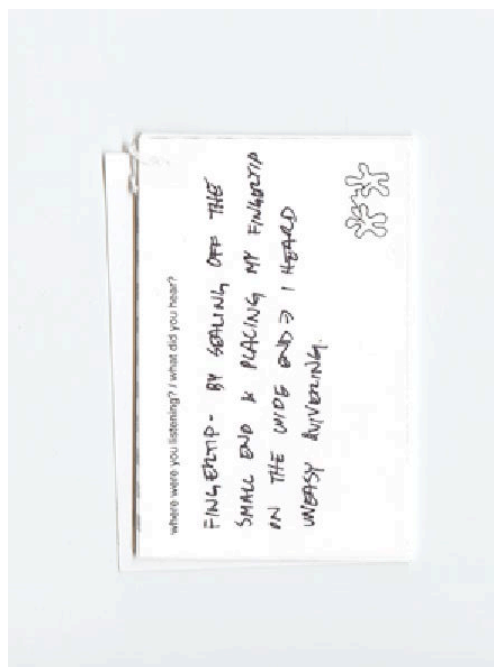 where were you listening? / what did you hear?
FINGERTIP - BY SEALING OFF THE
SMALL END & PLACING MY FINGERTIP
ON THE WIDE END → I HEARD
UNEASY QUIVERING.